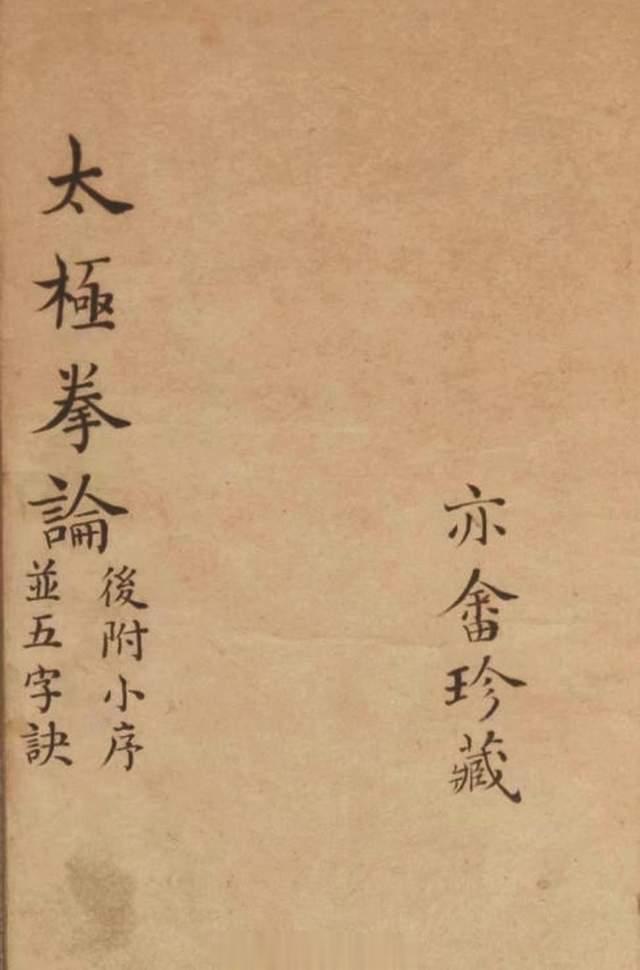 亦畬珍藏
太極拳論
後附小序
並五字訣